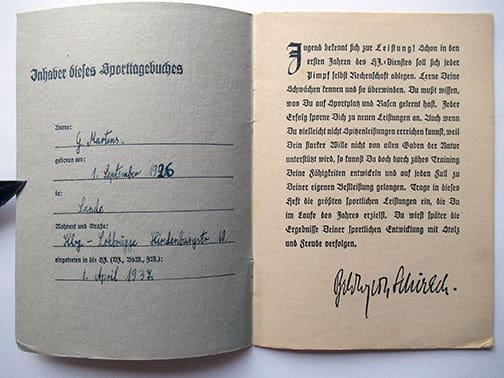 Inhaber dieses Sporttagebuches
Name:
G. Martens.
geboren am:
1. September 1926
in:
Sande
Wohnort und Straße:
Hbg - Lohbrügge Hindenburgstr.
eingetreten in die HJ. (DJ., BdM., JM.):
1. April 1937
Jugend bekennt sich zur Leistung! Schon in den
ersten Jahren des HJ.-Dienstes soll sich jeder
Pimpf selbst Rechenschaft ablegen. Lerne Deine
Schwächen kennen und sie überwinden. Du mußt wissen,
was Du auf Sportplatz und Rasen gelernt hast. Jeder
Erfolg sporne Dich zu neuen Leistungen an. Auch wenn
Du vielleicht nicht Spitzenleistungen erreichen kannst, weil
Dein starker Wille nicht von allen Gaben der Natur
unterstützt wird, so kannst Du doch durch zähes Training
Deine Fähigkeiten entwickeln und auf jeden Fall zu
Deiner eigenen Bestleistung gelangen. Trage in dieses
Heft die größten sportlichen Leistungen ein, die Du
im Laufe des Jahres erzielst. Du wirst später die
Ergebnisse Deiner sportlichen Entwicklung mit Stolz
und Freude verfolgen.
Baldur von Schirach.